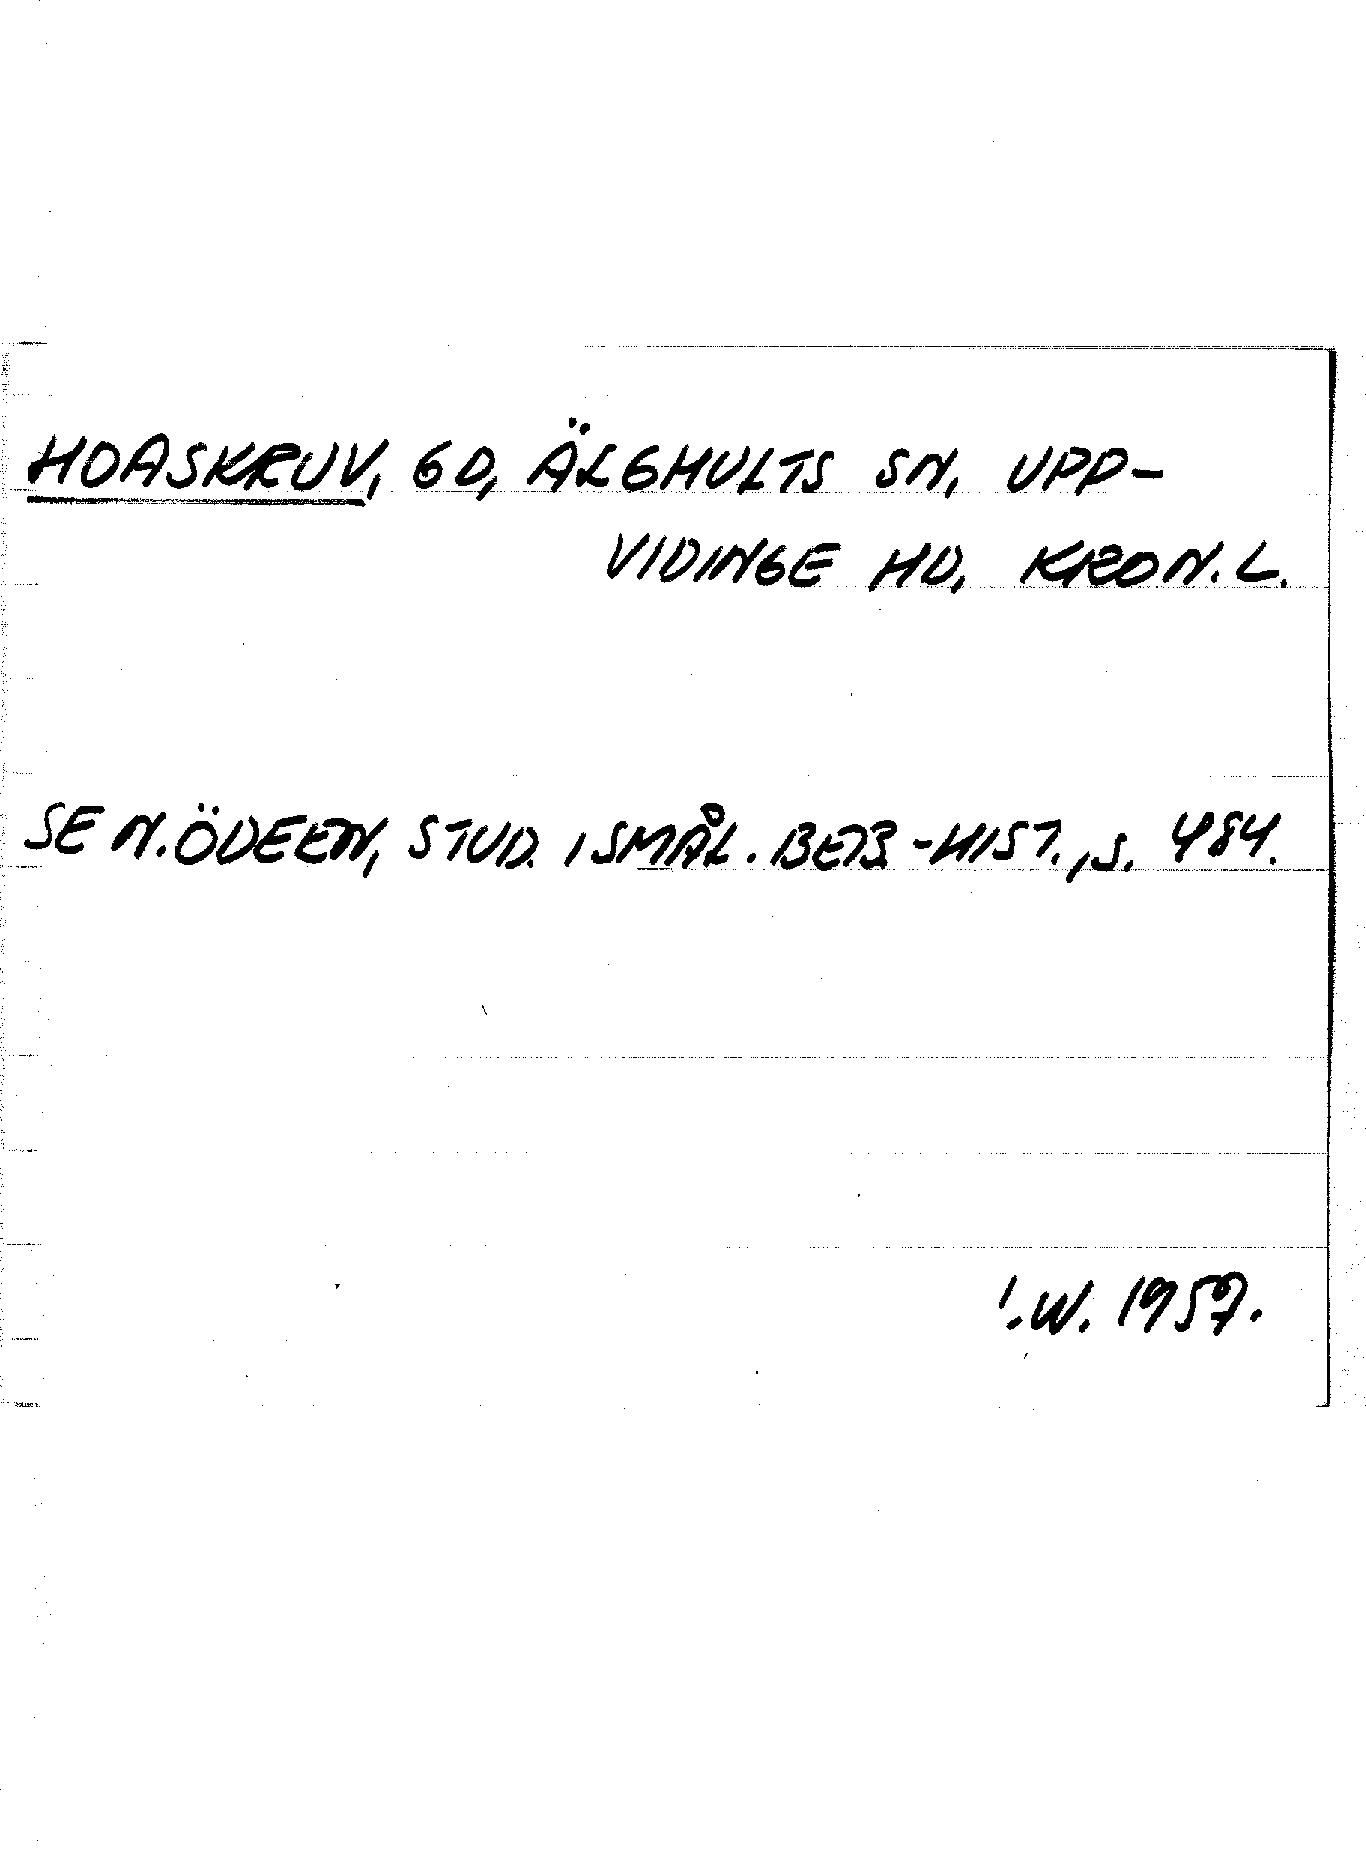 HOASKRUV, GD, ÄLGHULTS SN, UPP-
VIDINGE HD, KRON. L.
SE N. ÖDEEN, STUD. I SMÅL. BEB-HIST., S. 484.
I.W. 1957.